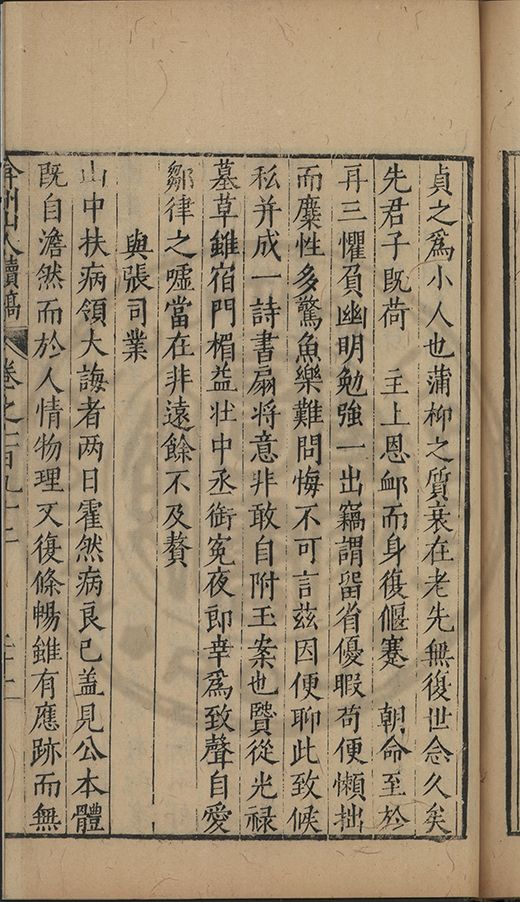 貞之為小人也蒲柳之質衰在老先無復世念久矣
先君子既荷　主上恩䘏而身復偃蹇　朝命至於
再三懼負幽明勉強一出竊謂留省優暇苟便懶拙
而麋性多驚魚樂難問悔不可言茲因便聊此致候
私并成一詩書扇将意非敢自附王案也暨從光禄
墓草雖宿門楣益壮中丞銜冤夜即幸為致聲自愛
鄒律之嘘當在非遠餘不及贅
與張司業
山中扶病領大誨者两日霍然病良已盖見公本體
既自澹然而於人情物理又復條暢雖有應跡而無
弇州山人續稿　卷之一百九十二